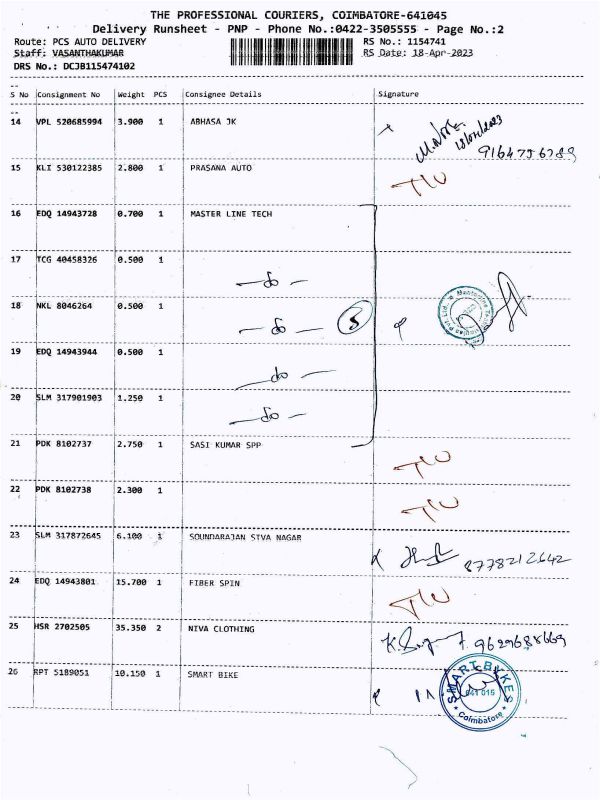 THE PROFESSIONAL COURIERS, COIMBATORE-641045
Delivery Runsheet - PNP - Phone No.:0422-3505555 - Page No.:2
Route: PCS AUTO DELIVERY RS No.: 1154741
Staff: VASANTHAKUMAR RS Date: 18-Apr-2023
DRS No.: DCJB115474102
S No Consignment No Weight PCS Consignee Details Signature
14 VPL 520685994 3.900 1 ABHASA JK
15 KLI 530122385 2.800 1 PRASANA AUTO
16 EDQ 14943728 0.700 1 MASTER LINE TECH
17 TCG 40458326 0.500 1
— do —
18 NKL 8046264 0.500 1
— do — 5
19 EDQ 14943944 0.500 1
— do —
20 SLM 317901903 1.250 1
— do —
21 PDK 8102737 2.750 1 SASI KUMAR SPP
22 PDK 8102738 2.300 1
23 SLM 317872645 6.100 1 SOUNDARAJAN SIVA NAGAR
8778212642
24 EDQ 14943801 15.700 1 FIBER SPIN
25 HSR 2702505 35.350 2 NIVA CLOTHING
9629688669
26 RPT 5189051 10.150 1 SMART BIKE
SMART BYKES
641 015
Coimbatore